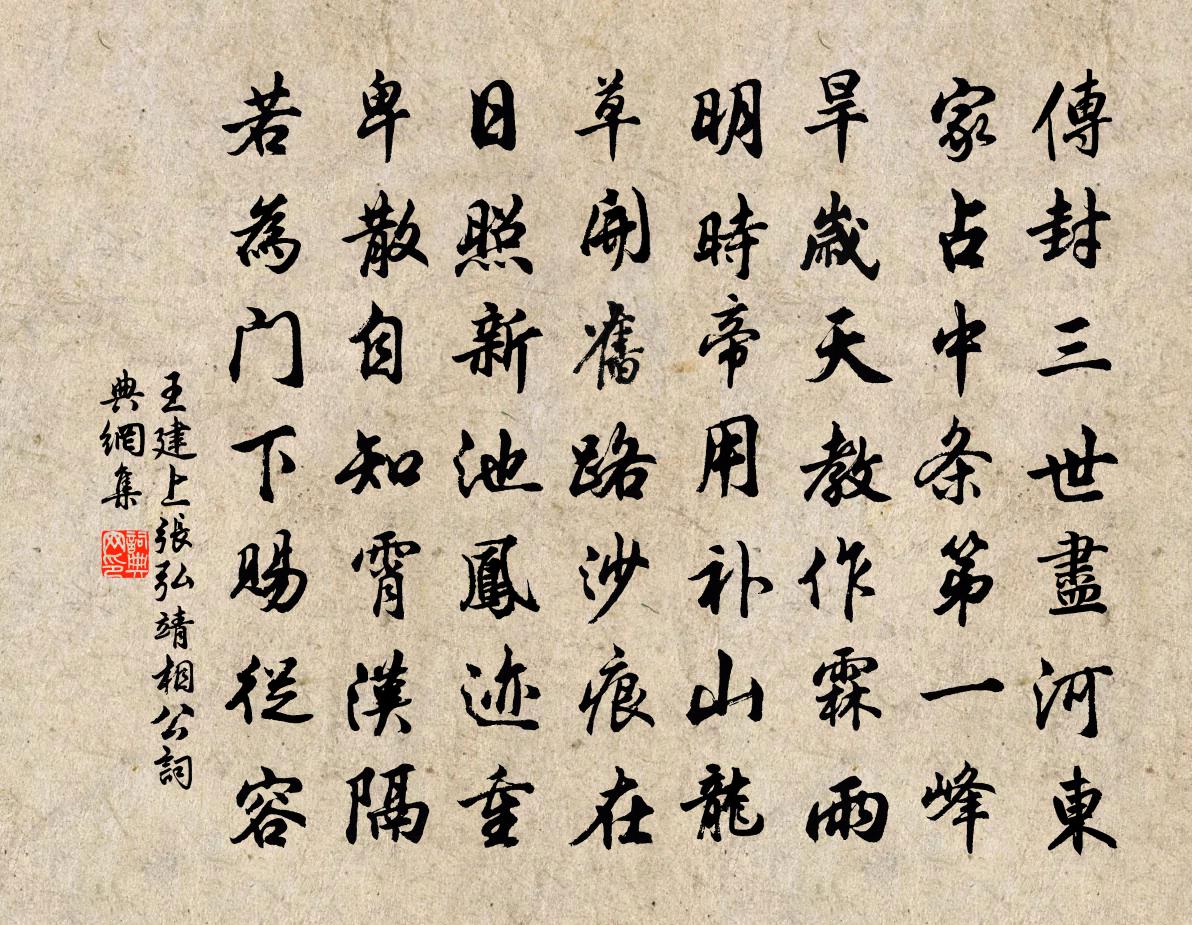 傳封三世盡河東
家占中条第一峰
旱歲天教作霖雨
明時帝用补山龍
草開舊路沙痕在
日照新池鳳迹重
卑散自知霄漢隔
若為门下賜從容
王建上張弘靖相公詞
典網集
詞典
网印